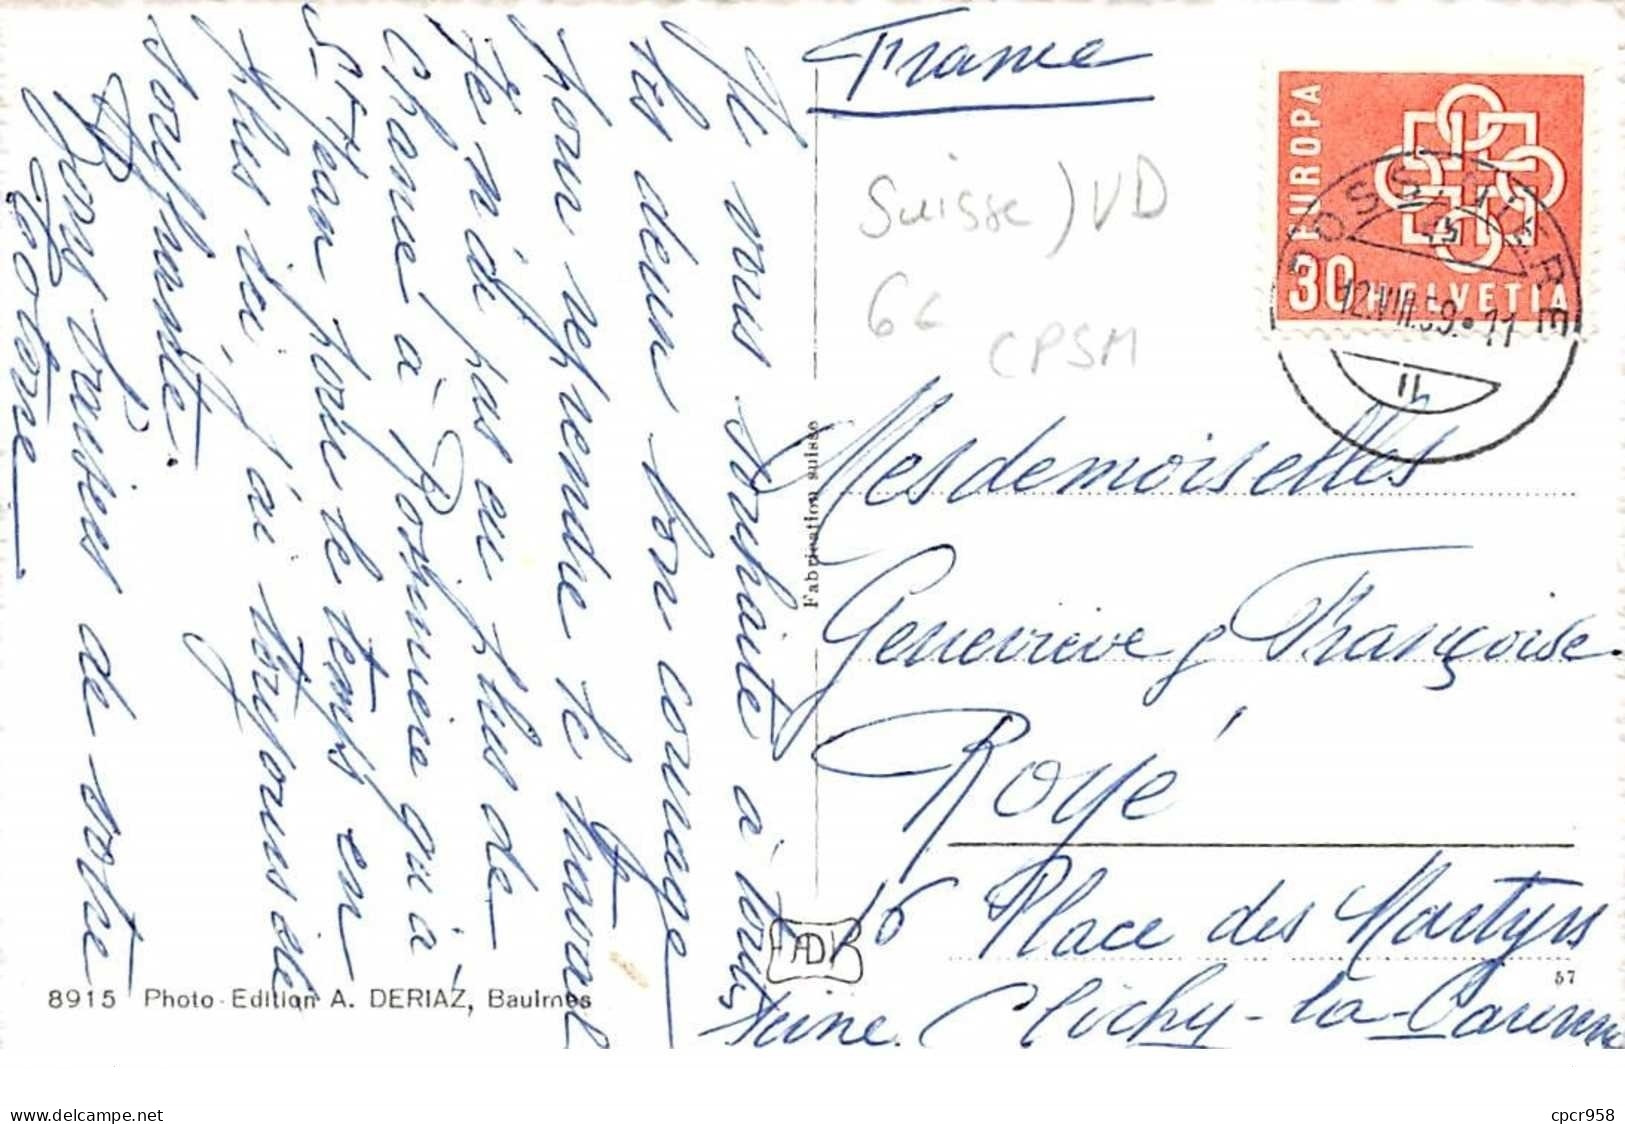 Je vous souhaite à toutes
les deux bon courage
pour reprendre le travail
Je n'ai pas eu plus de
chance à qu'à
St Jean pour le temps en
plus ici j'ai toujours été
souffrante.
Bons baisers de votre
France
EUROPA
30 HELVETIA
COSSONAY GARE
12.VIII.59.11
Suisse) VD
6€
CPSM
Mesdemoiselles
Geneviève & Françoise
Royé
16 Place des Martyrs
Clichy-la-Garenne
Seine.
Fabrication suisse
ADB
57
8915 Photo-Edition A. DERIAZ, Baulmes
cpcr958